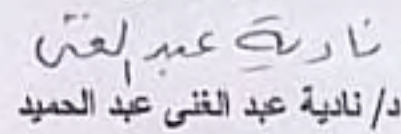 نادية عبد الغنى
د/ نادية عبد الغنى عبد الحميد